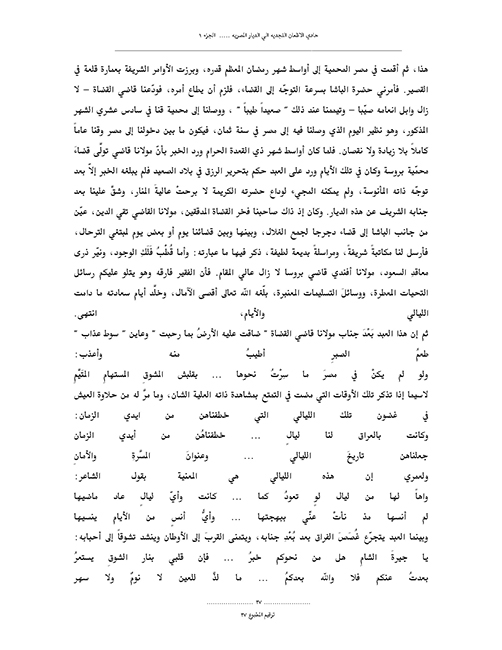 حادي الاظعان النجديه الي الديار المصريه ..... الجزء ١
هذا، ثم أقمت في مصر المحمية إلى أواسط شهر رمضان المعظم قدره، وبرزت الأوامر الشريفة بعمارة قلعة في
القصير. فأمرني حضرة الباشا بسرعة التوجّه إلى القضاء، فلزم أن يطاع أمره، فودّعنا قاضي القضاة – لا
زال وابل انعامه صيّباً – وتيممنا عند ذلك " صعيداً طيباً " ، ووصلنا إلى محمية قنا في سادس عشري الشهر
المذكور، وهو نظير اليوم الذي وصلنا فيه إلى مصر في سنة ثمان، فيكون ما بين دخولنا إلى مصر وقنا عاماً
كاملاً بلا زيادة ولا نقصان. فلما كان أواسط شهر ذي القعدة الحرام ورد الخبر بأنّ مولانا قاضي تولّى قضاء
محمّية بروسة وكان في تلك الأيام ورد على العبد حكم بتحرير الرزق في بلاد الصعيد فلم يبلغه الخبر إلاّ بعد
توجّه ذاته المأنوسة، ولم يمكنه المجيء لوداع حضرته الكريمة لا برحتْ عاليةَ المنار، وشقّ علينا بعد
جنابه الشريف عن هذه الديار. وكان إذ ذاك صاحبنا فخر القضاة المدققين، مولانا القاضي تقي الدين، عيّن
من جانب الباشا إلى قضاء دجرجا لجمع الغلال، وبينها وبين قضائنا يوم أو بعض يوم لمبتغي الترحال،
فأرسل لنا مكاتبةً شريفةً، ومراسلةً بديعة لطيفة، ذكر فيها ما عبارته: وأما قُطْبُ فَلَكِ الوجود، ونيّر ذرى
معاقد السعود، مولانا أفندي قاضي بروسا لا زال عالي المقام. فأن الفقير فارقه وهو يتلو عليكم رسائل
التحيات المعطرة، ووسائل التسليمات المعنبرة، بلّغه الله تعالى أقصى الآمال، وخلّد أيام سعادته ما دامت
الليالي والأيام، انتهى.
ثم إن هذا العبد بَعْدَ جناب مولانا قاضي القضاة " ضاقت عليه الأرضُ بما رحبت " وعاين " سوط عذاب "
طعمُ الصبرِ أطيبُ منه وأعذب:
ولو لم يكنْ في مصرَ ما سِرْتُ نحوها ... بقلبش المشوقِ المستهام المتيّمِ
لاسيما إذا تذكر تلك الأوقات التي مضت في التمتع بمشاهدة ذاته العلية الشان، وما مرّ له من حلاوة العيش
في غضون تلك الليالي التي خطفناهن من ايدي الزمان:
وكانت بالعراق لنا ليالٍ ... خطفناهُن من أيدي الزمان
جعلناهن تاريخَ الليالي ... وعنوانَ المسَّرة والأمان
ولعمري إن هذه الليالي هي المعنية بقول الشاعر:
واهاً لها من ليال لو تعودُ كما ... كانت وأيّ ليالٍ عاد ماضيها
لم أنسها مذ نأتْ عنّي ببهجتها ... وأيُّ أنس من الأيام ينسيها
وبينما العبد يتجرّع غُصَصَ الفراق بعد بُعْدِ جنابه، ويتمنى القرب إلى الأوطان وينشد تشوقاً إلى أحبابه:
يا جيرةَ الشام هل من نحوكم خبرُ ... فإن قلبي بنار الشوقِ يستعرُ
بعدتُ عنكم فلا والله بعدكمُ ... ما لذَّ للعين لا نومٌ ولا سهر
...................... ٣٧ ......................
ترقيم المشروع ٣٧